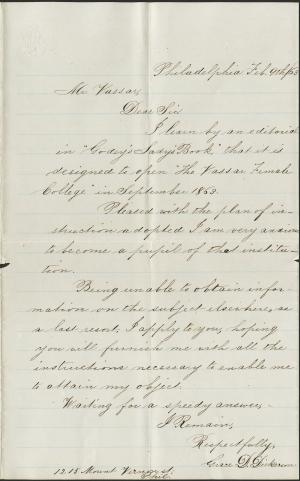 Philadelphia Feb. 4th/63
Mr Vassar,
Dear Sir
I learn by an editorial
in "Godey's Lady's Book," that it is
designed to open "The Vassar Female
College" in September 1863.
Pleased with the plan of in-
struction adopted I am very anxious
to become a pupil of that institu-
tion.
Being unable to obtain infor-
mation on the subject elsewhere, as
a last resort, I apply to you, hoping
you will furnish me with all the
instructions necessary to enable me
to attain my object.
Waiting for a speedy answer,
I Remain,
Respectfully,
Grace D.
1218 Mount Vernon st.
Phil.